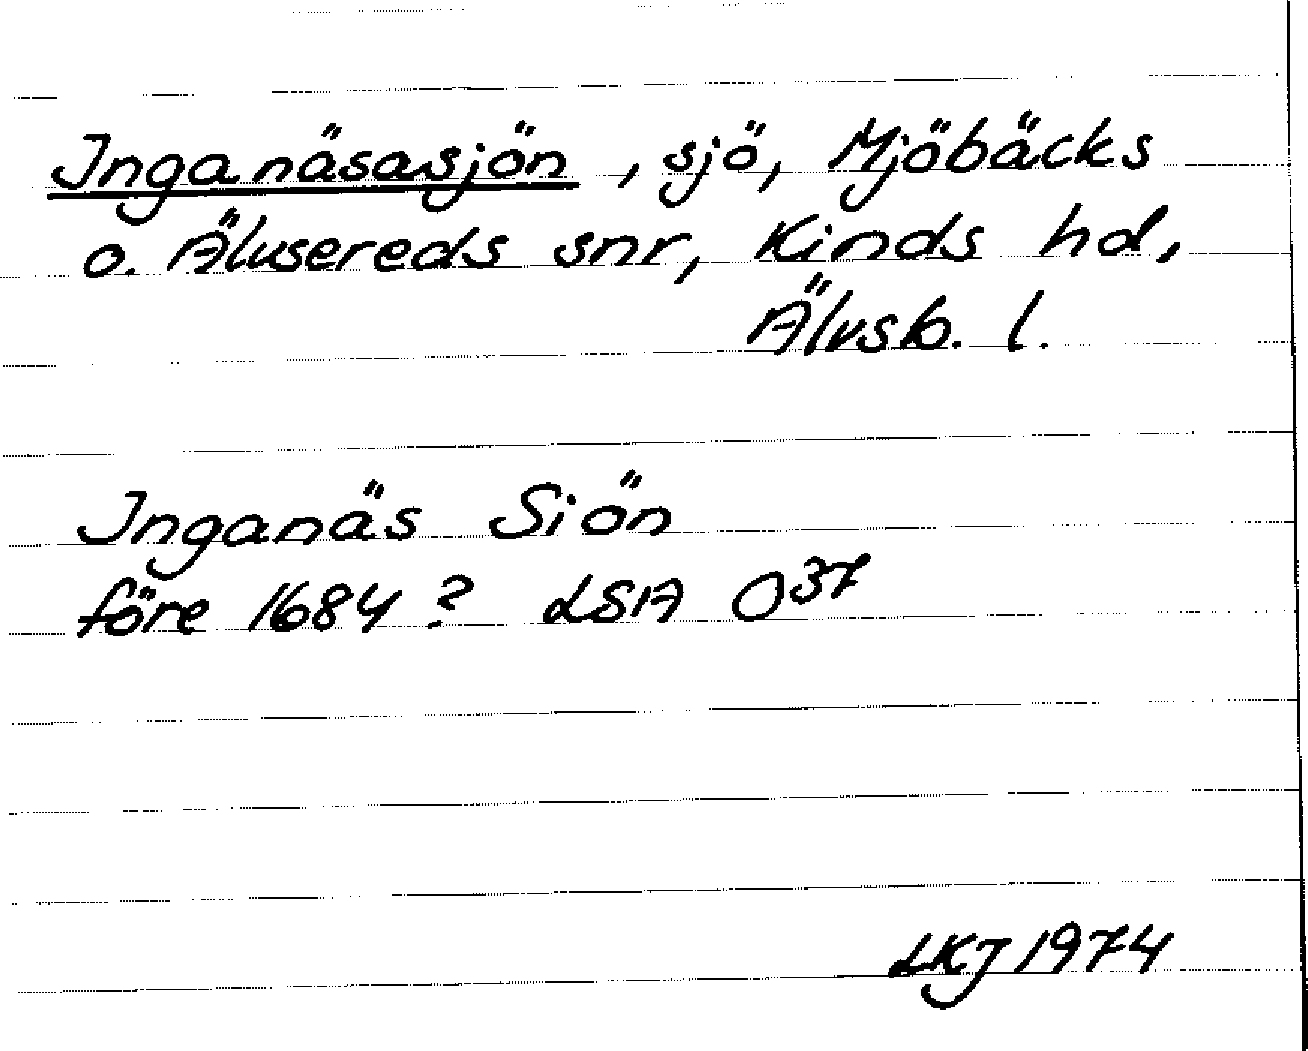 Inganäsasjön, sjö, Mjöbäcks
o. Älvsereds snr, Kinds hd,
Älvsb. l.
Inganäs Siön
före 1684? LSA O37
LKJ 1974